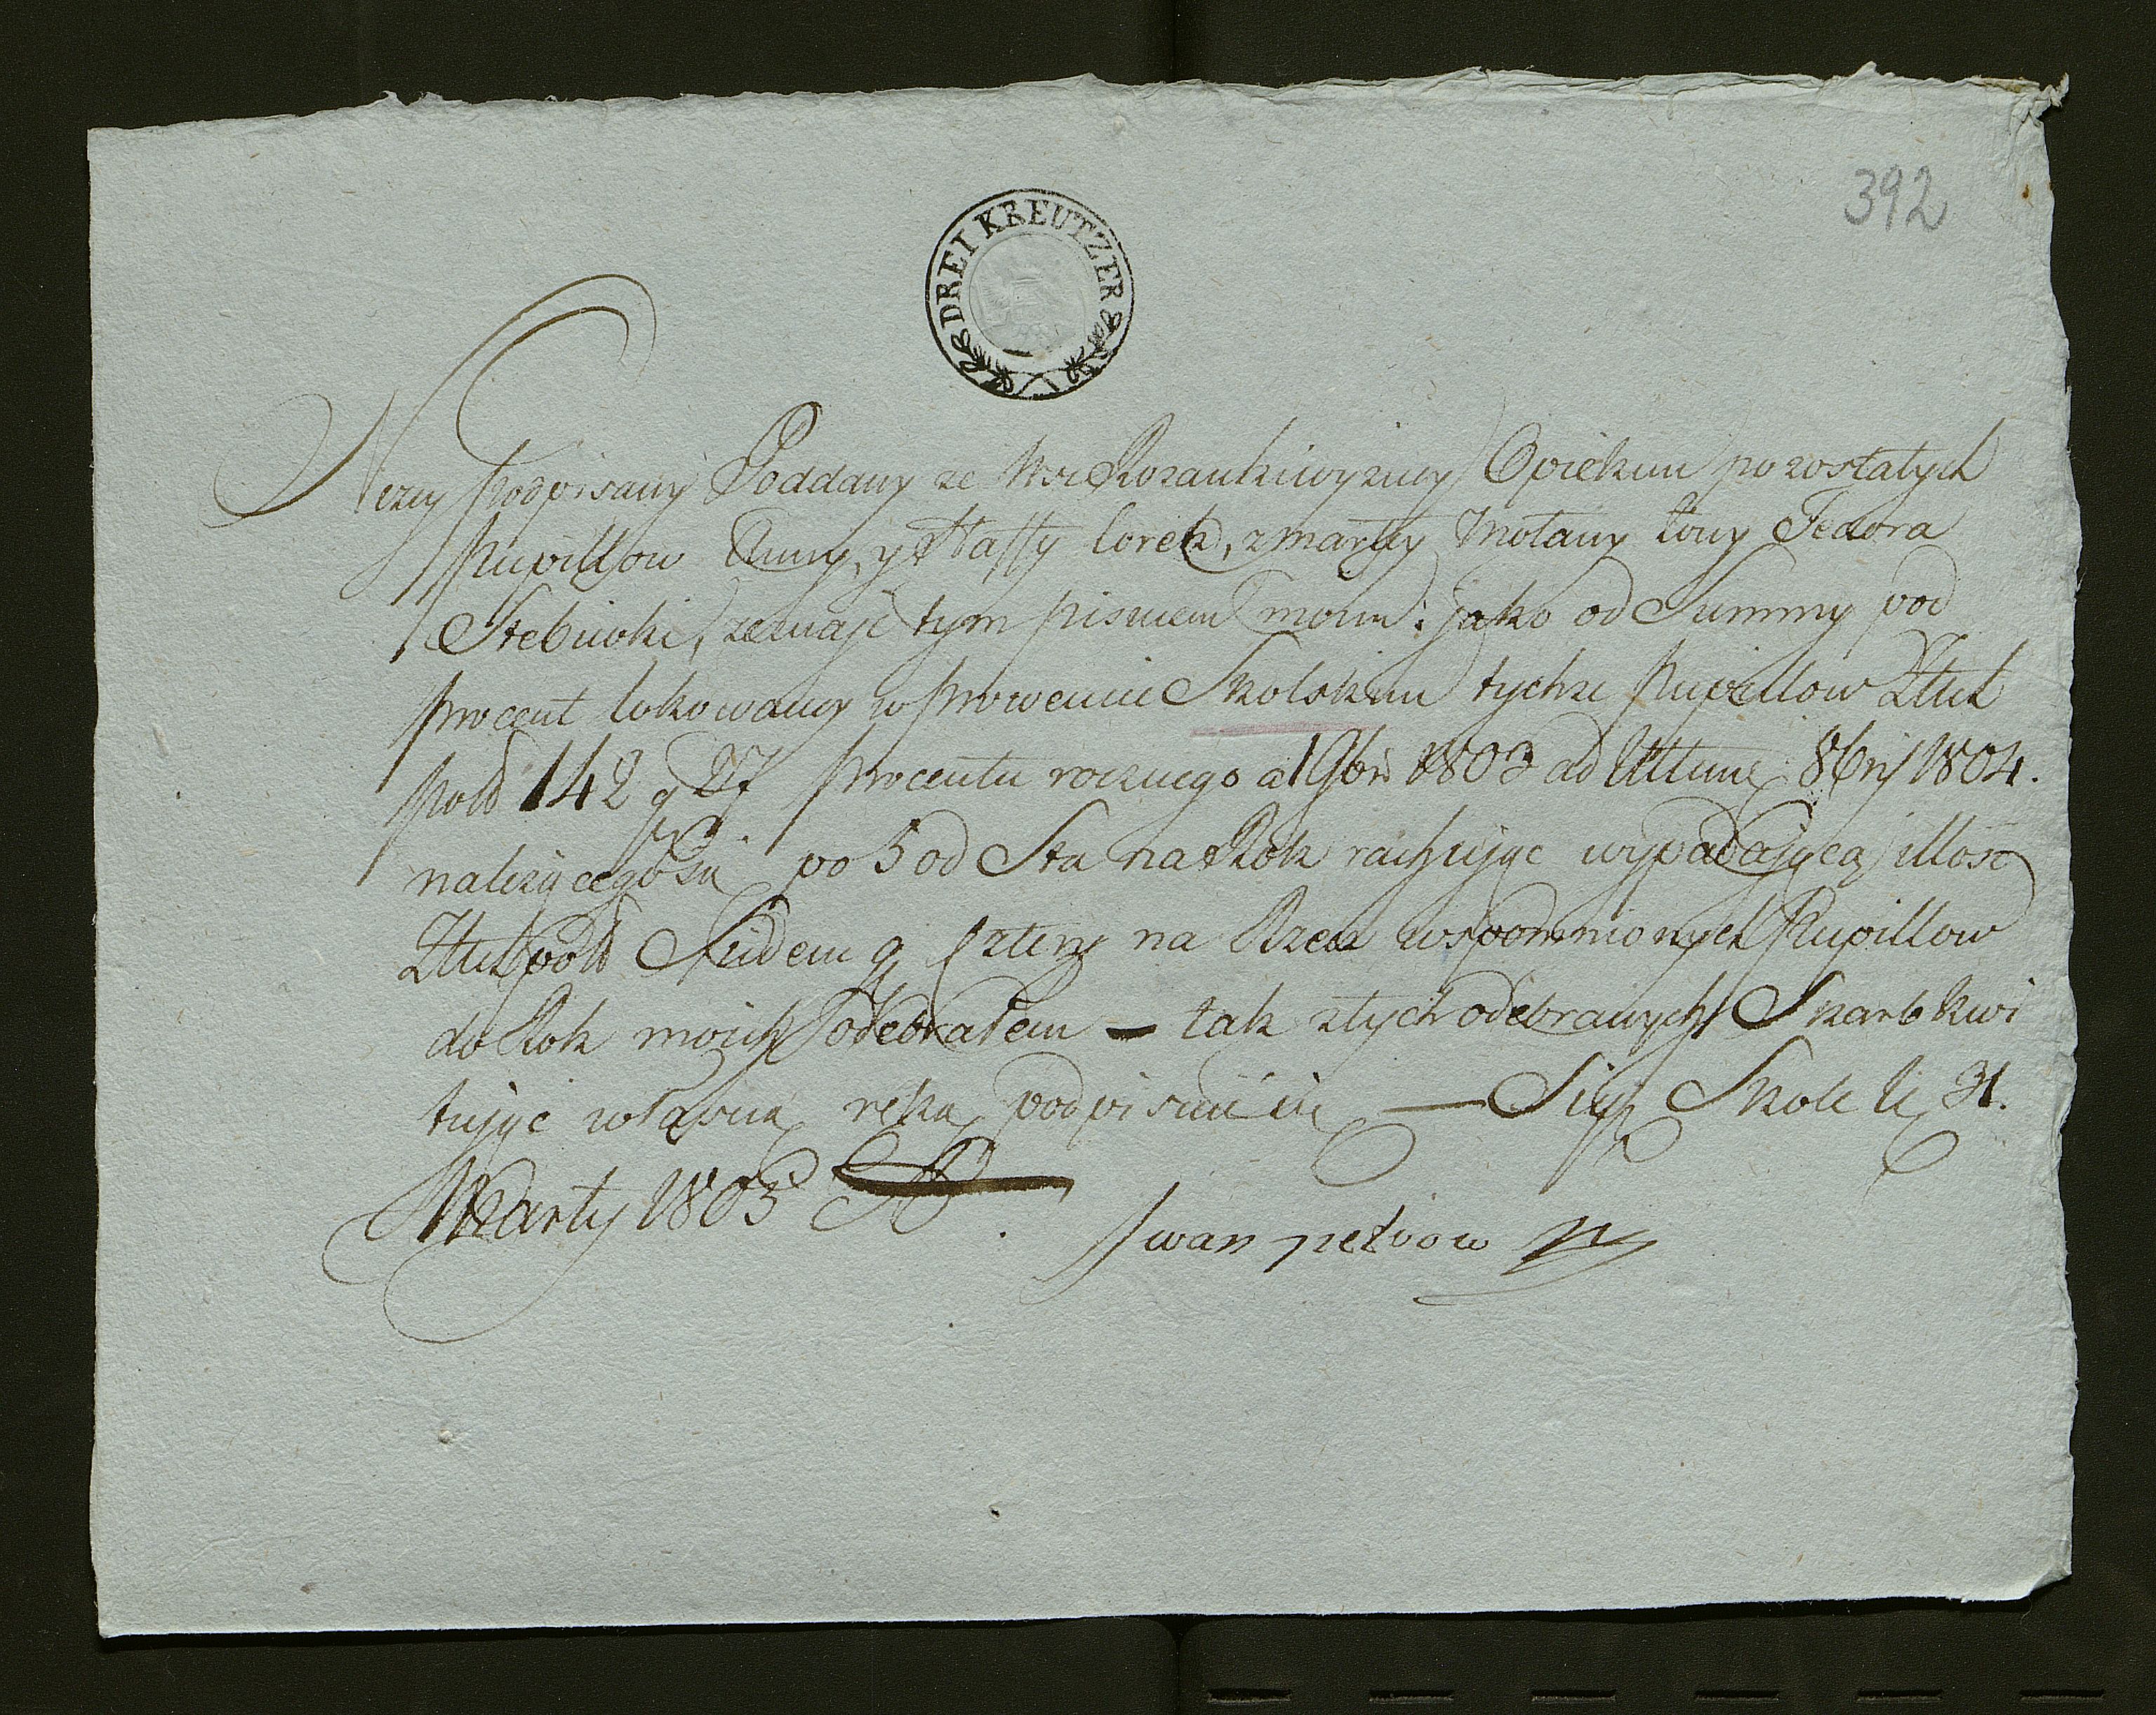 392
DREI KREUTZER
Nizey podpisany Poddany ze Wsi Rozanki wyzney Opiekun pozostałych
Pupillow Anny, y Nasty Corek, zmarłey Mołany żony Fedora
Stebiwki, zeznaję tym pismem moim: jako od Summy pod
procent lokowaney w prowencie Skolskim tychże Pupillow Złłch
polł 142 g 27 procentu rocznego a 1 9bris 1803 ad Ultime 8bris 1804.
należącego się po 5 od Sta na Rok rachując wypadającą illosc
Złłch polł Siedem g cztery na Rzecz wspomnionych Pupillow
do Rok moich odebrałem — tak z tych odebranych Skarb kwi
tując własną ręką podpisuię się — Sig Skole d 31.
Marty 1805
Iwan petriow